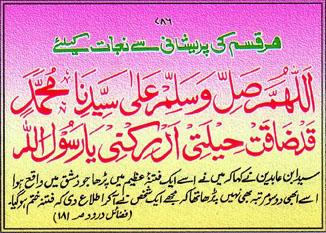 ۷۸۶
ہر قسم کی پریشانی سے نجات کیلئے
اَللّٰهُمَّ صَلِّ وَسَلِّمْ عَلٰی سَيِّدِنَا مُحَمَّدٍ
قَدْ ضَاقَتْ حِيْلَتِیْ اَدْرِكْنِیْ يَا رَسُوْلَ اللّٰهِ
سید ابن عابدین نے کہا کہ میں نے اسے ایک فتنۂ عظیم میں پڑھا جو دمشق میں واقع ہوا
اسے ابھی دو سو مرتبہ بھی نہیں پڑھا تھا کہ مجھے ایک شخص نے آکر اطلاع دی کہ فتنہ ختم ہوگیا۔
(فضائل درود صہ ۱۸۱)